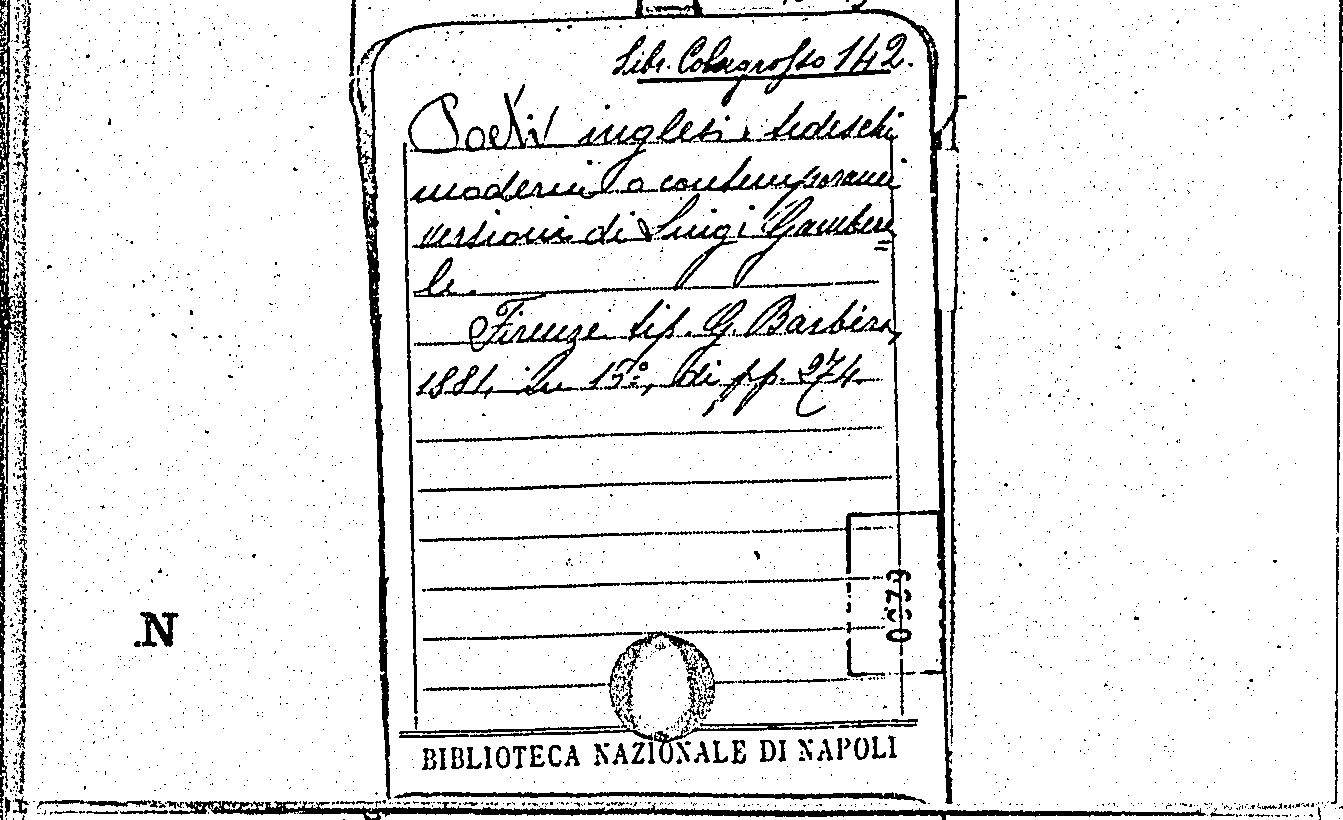 Libr. Colagrosso 142.
Poeti inglesi e tedeschi
moderni o contemporanei
versioni di Luigi Gambere=
le.
Firenze tip. G. Barbèra,
1881, In 15º, di pp. 274.
.N
BIBLIOTECA NAZIONALE DI NAPOLI